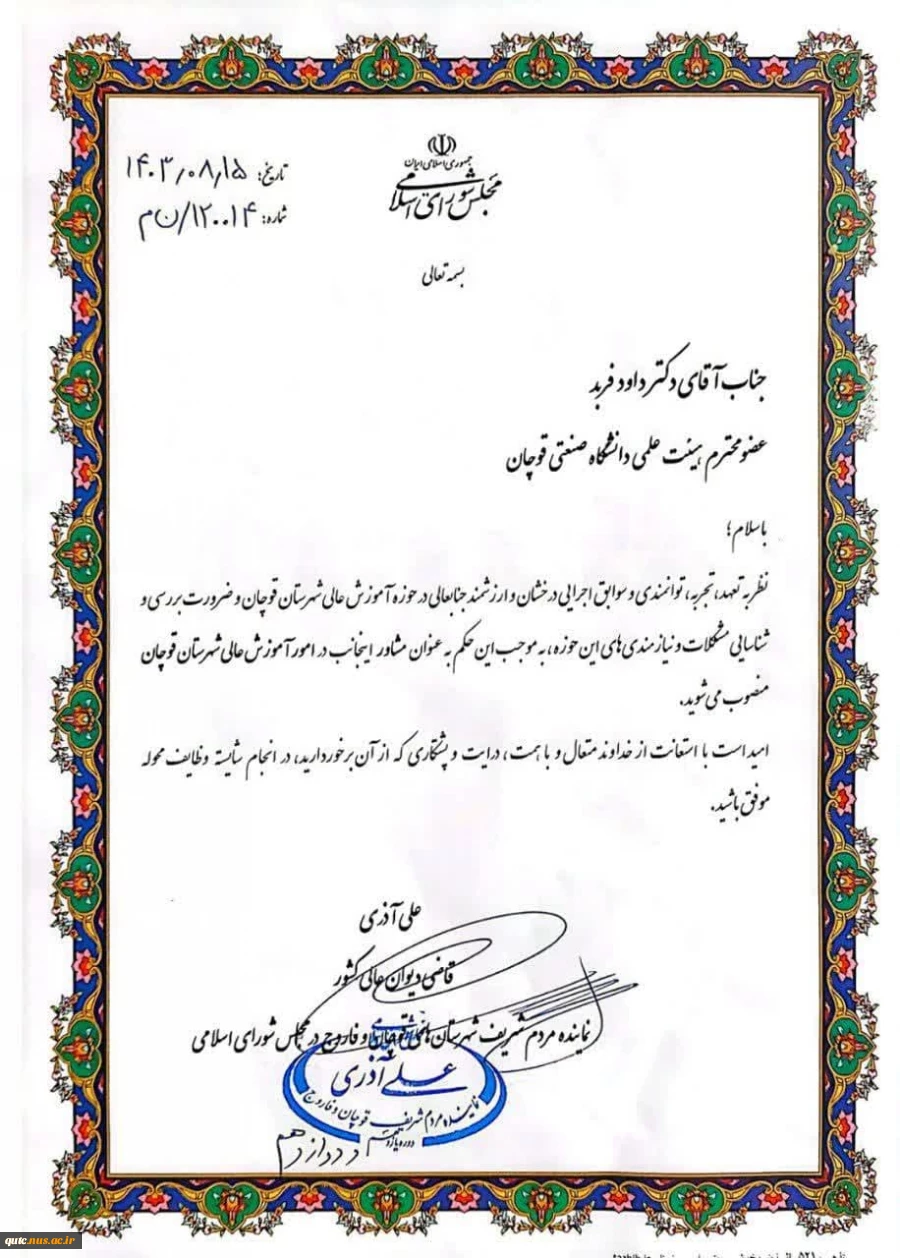 جمهوری اسلامی ایران
مجلس شورای اسلامی
تاریخ: ۱۴۰۳/۰۸/۱۵
شماره: ۱۲۰۰۱۴/ن م
بسمه تعالی
جناب آقای دکتر داود فربد
عضو محترم هیئت علمی دانشگاه صنعتی قوچان
با سلام؛
نظر به تعهد، تجربه، توانمندی و سوابق اجرایی درخشان و ارزشمند جنابعالی در حوزه آموزش عالی شهرستان قوچان و ضرورت بررسی و
شناسایی مشکلات و نیازمندی های این حوزه، به موجب این حکم به عنوان مشاور اینجانب در امور آموزش عالی شهرستان قوچان
منصوب می شوید.
امید است با استعانت از خداوند متعال و با همت، درایت و پشتکاری که از آن برخوردارید، در انجام شایسته وظایف محوله
موفق باشید.
علی آذری
قاضی دیوان عالی کشور
نماینده مردم شریف شهرستان های قوچان و فاروج در مجلس شورای اسلامی
علی آذری
نماینده مردم شریف قوچان و فاروج
دوره یازدهم
و دوازدهم
qutc.nus.ac.ir